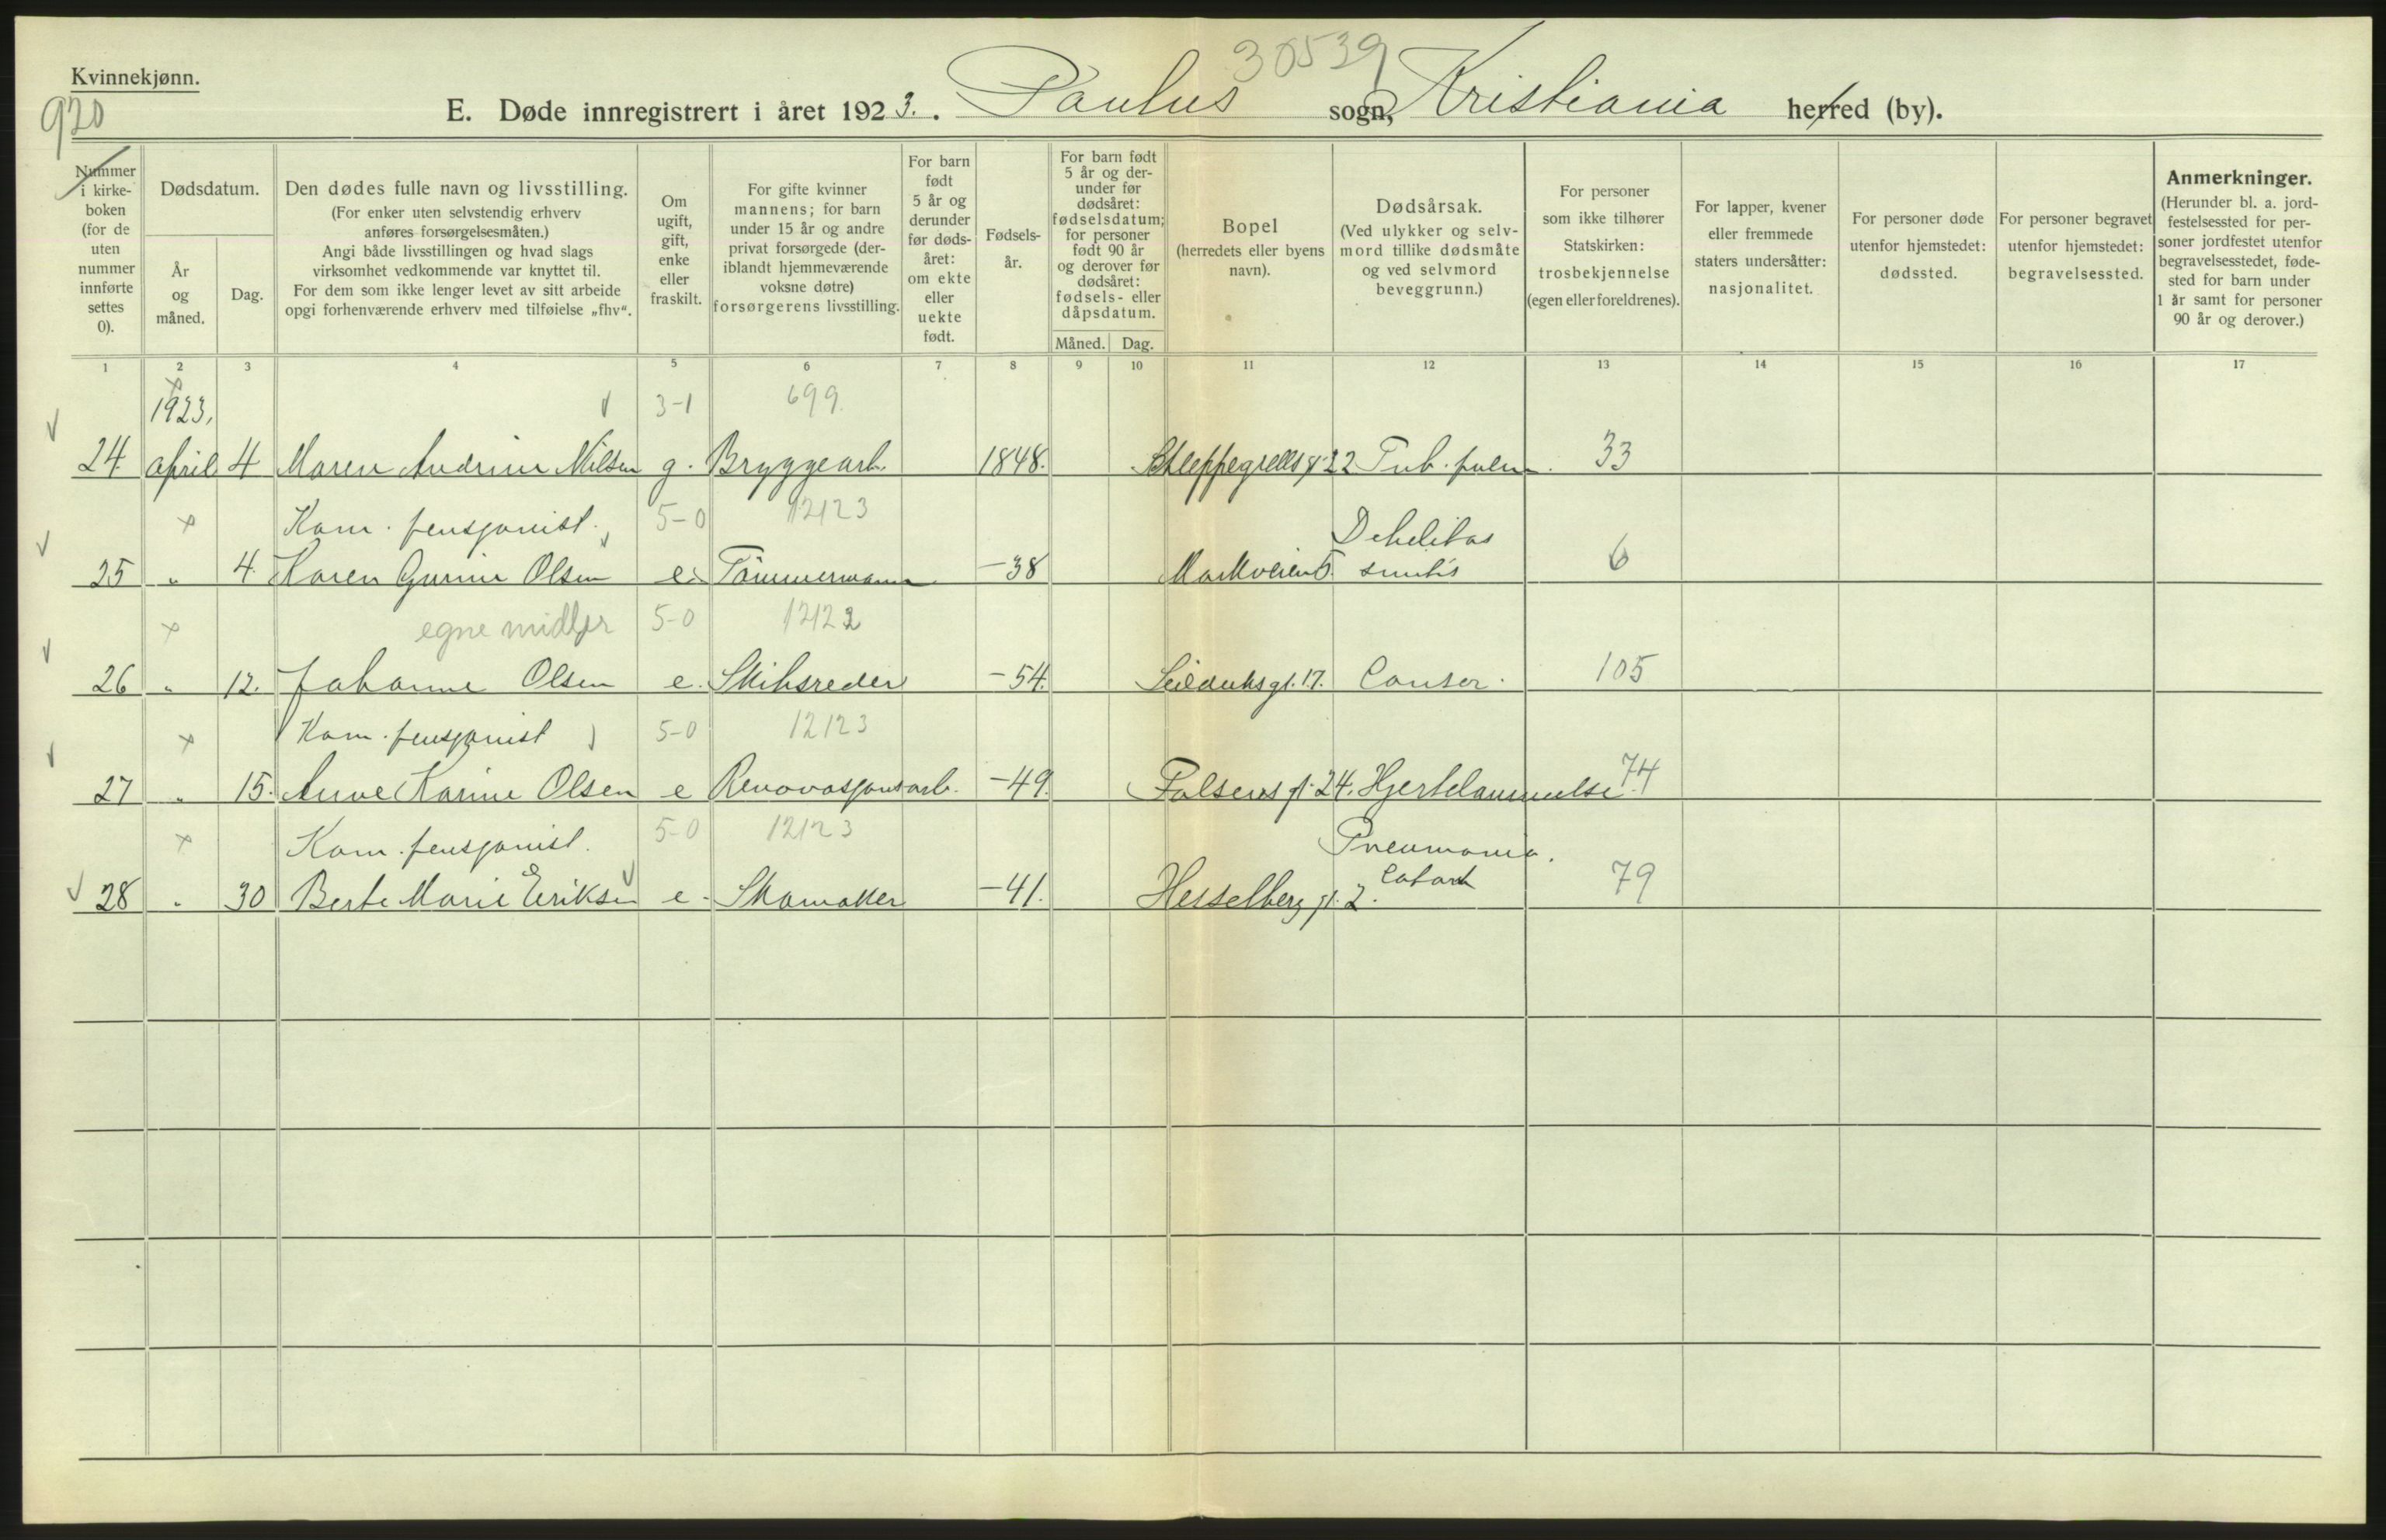 Kvinnekjønn.
30539
920
E. Døde innregistrert i året 1923. Paulus sogn, Kristiania herred (by).
Nummer i kirkeboken (for de uten nummer innførte settes 0).
Dødsdatum.
År og måned.
Dag.
Den dødes fulle navn og livsstilling.
(For enker uten selvstendig erhverv anføres forsørgelsesmåten.)
Angi både livsstillingen og hvad slags virksomhet vedkommende var knyttet til.
For dem som ikke lenger levet av sitt arbeide opgi forhenværende erhverv med tilføielse „fhv“.
Om ugift, gift, enke eller fraskilt.
For gifte kvinner mannens; for barn under 15 år og andre privat forsørgede (deriblandt hjemmeværende voksne døtre) forsørgerens livsstilling.
For barn født 5 år og derunder før dødsåret: om ekte eller uekte født.
Fødselsår.
For barn født 5 år og derunder før dødsåret: fødselsdatum; for personer født 90 år og derover før dødsåret: fødsels- eller dåpsdatum.
Måned. Dag.
Bopel
(herredets eller byens navn).
Dødsårsak.
(Ved ulykker og selvmord tillike dødsmåte og ved selvmord beveggrunn.)
For personer som ikke tilhører Statskirken: trosbekjennelse (egen eller foreldrenes).
For lapper, kvener eller fremmede staters undersåtter: nasjonalitet.
For personer døde utenfor hjemstedet: dødssted.
For personer begravet utenfor hjemstedet: begravelsessted.
Anmerkninger.
(Herunder bl. a. jordfestelsessted for personer jordfestet utenfor begravelsesstedet, fødested for barn under 1 år samt for personer 90 år og derover.)
1 2 3 4 5 6 7 8 9 10 11 12 13 14 15 16 17
1923. 3-1 699.
24. april 4 Maren Andrine Nilsen g. Bryggearb. 1848. Schleppegrells gt. 22 Tub. pulm. 33
Kom. pensjonist. 5-0 12123 Debilitas
25 " 4. Karen Gurine Olsen e. Tömmermann -38 Markveien 5. senilis 6
egne midler 5-0 12122
26 " 12. Johanne Olsen e. Skibsreder -54. Seilduksgt. 17. Canser. 105
Kom. pensjonist 5-0 12123
27 " 15. Anne Karine Olsen e Renovasjonsarb. -49. Falsens gt. 24. Hjertelammelse. 74
Kom. pensjonist. 5-0 12123 Pneumonia.
28 " 30 Berte Marie Eriksen e. Skomaker -41. Hesselberg gt. 2. Catarrh 79